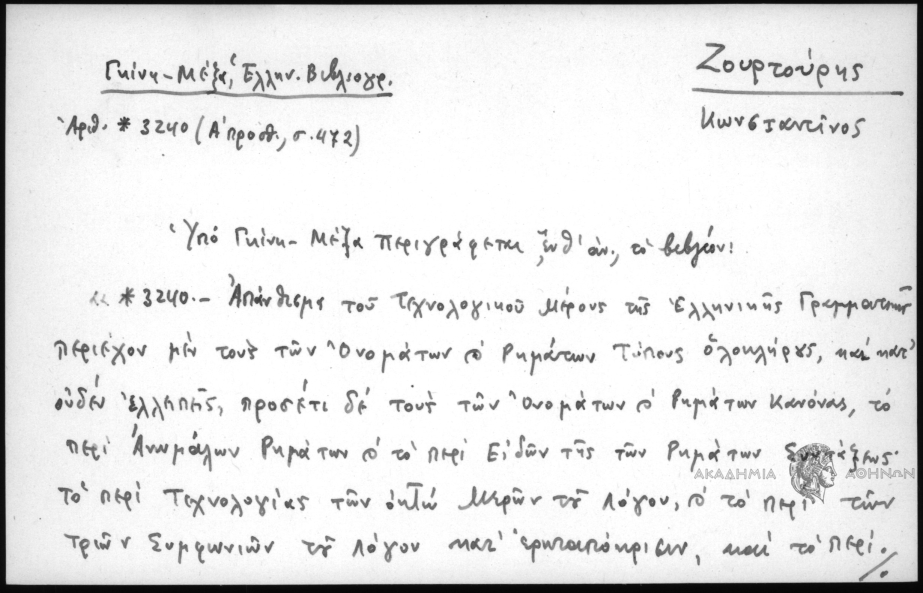 Γκίνη-Μέξα, Ἑλλην. Βιβλιογρ.
Ζουρτούρης
Ἀριθ. * 3240 (Α' πρόσθ., σ. 472)
Κωνσταντῖνος
Ὑπό Γκίνη-Μέξα περιγράφεται, ἔνθ' ἀν., τό βιβλίον:
«* 3240.- Ἀπάνθισμα τοῦ Τεχνολογικοῦ Μέρους τῆς Ἑλληνικῆς Γραμματικῆς
περιέχον μέν τούς τῶν Ὀνομάτων ϗ Ρημάτων Τύπους ὁλοκλήρους, καί κατ'
οὐδέν ἐλλιπεῖς, προσέτι δέ τούς τῶν Ὀνομάτων ϗ Ρημάτων Κανόνας, τό
περί Ἀνωμάλων Ρημάτων ϗ τό περί Εἰδῶν τῆς τῶν Ρημάτων Συντάξεως·
ΑΚΑΔΗΜΙΑ ΑΘΗΝΩΝ
τό περί Τεχνολογίας τῶν ὀκτώ Μερῶν τοῦ Λόγου, ϗ τό περί τῶν
τριῶν Συμφωνιῶν τοῦ Λόγου κατ' ἐρωταπόκρισιν, καί τό περί
./.